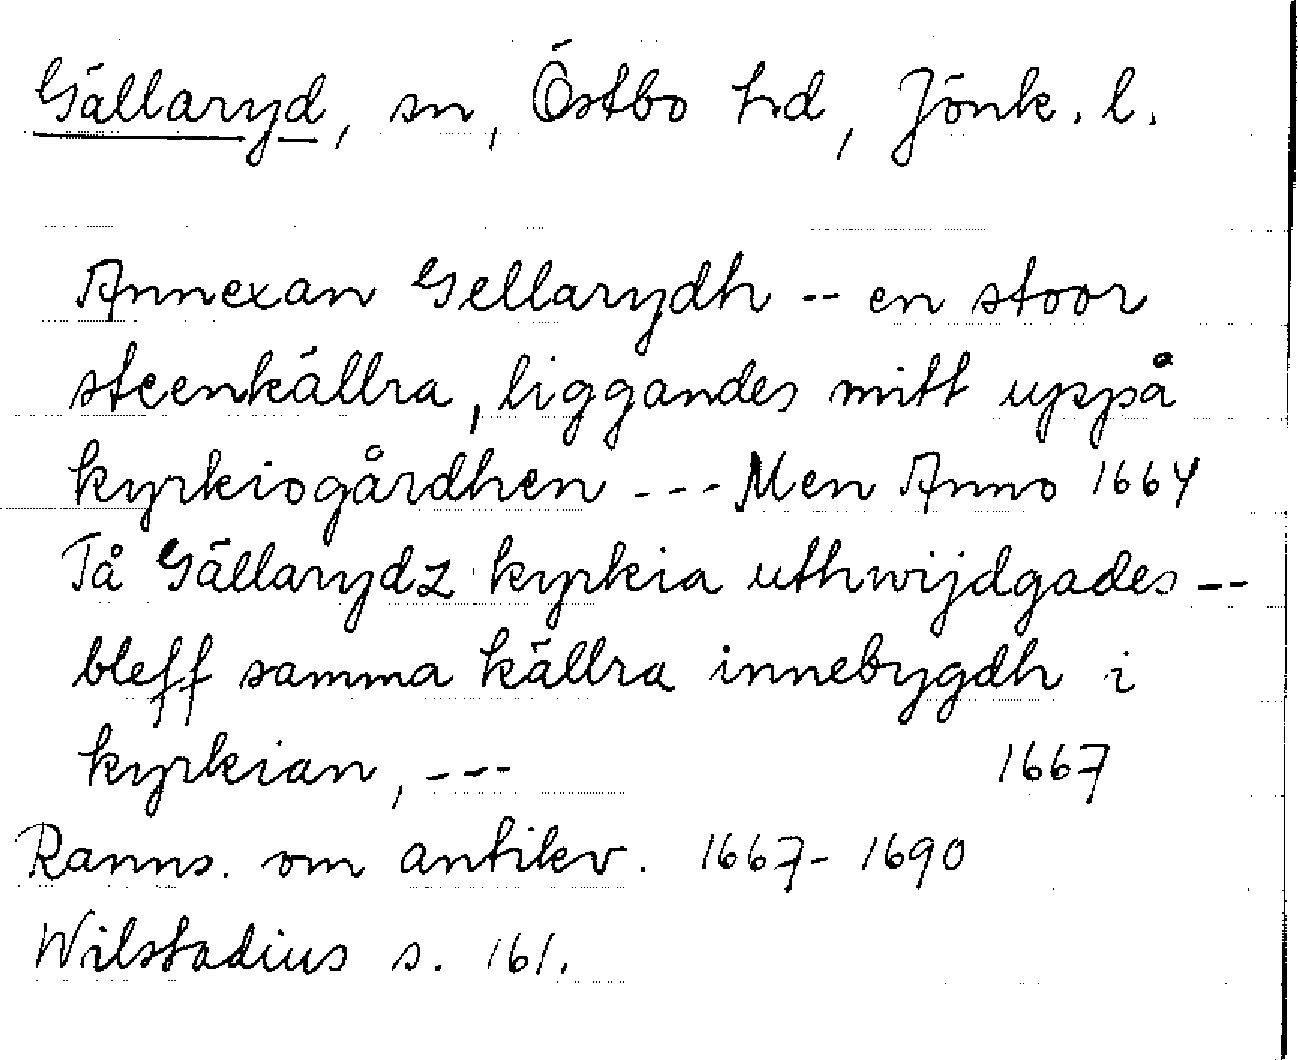 Gällaryd, sn, Östbo hd, Jönk. l.
Annexan Gellarydh -- en stoor
steenkällra, liggandes mitt uppå
kyrkiogårdhen --- Men Anno 1664
Tå Gällarydz kyrkia uthwijdgades --
bleff samma källra innebygdh i
kyrkian, --- 1667
Ranns. om antikv. 1667-1690
Wilstadius s. 161.